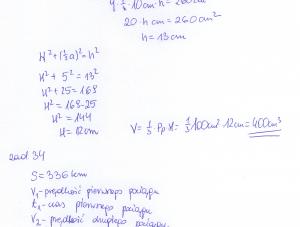 4·½·10cm·h=260cm²
20·hcm=260cm²
h=13cm
H²+(½a)²=h²
H²+5²=13²
H²+25=169
H²=169-25
H²=144
H=12cm
V=⅓·Pp·H=⅓100cm²·12cm=400cm³
zad 34
S=336km
V₁-prędkość pierwszego pociągu
t₁-czas pierwszego pociągu
V₂-prędkość drugiego pociągu